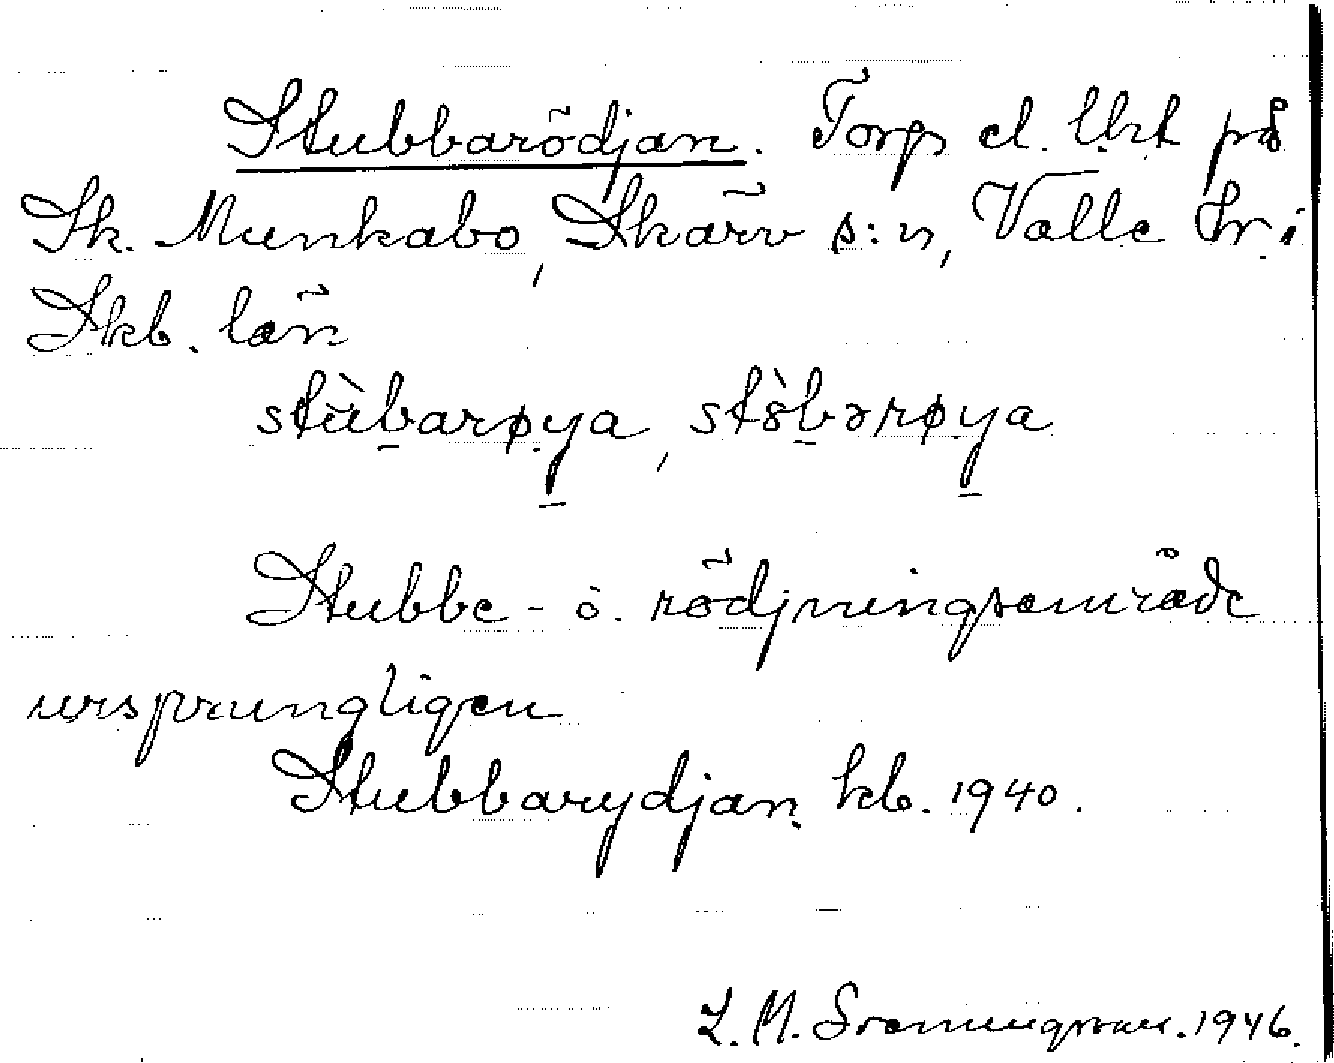 Stubbarödjan. Torp el. lht på
Sk. Munkabo, Skärv s:n, Valle hr i
Skb. län
stùbarøya, stòbərøya
Stubbe- o. rödjningsområde
ursprungligen
Stubbarydjan kb. 1940.
L. M. Svenungsson. 1946.